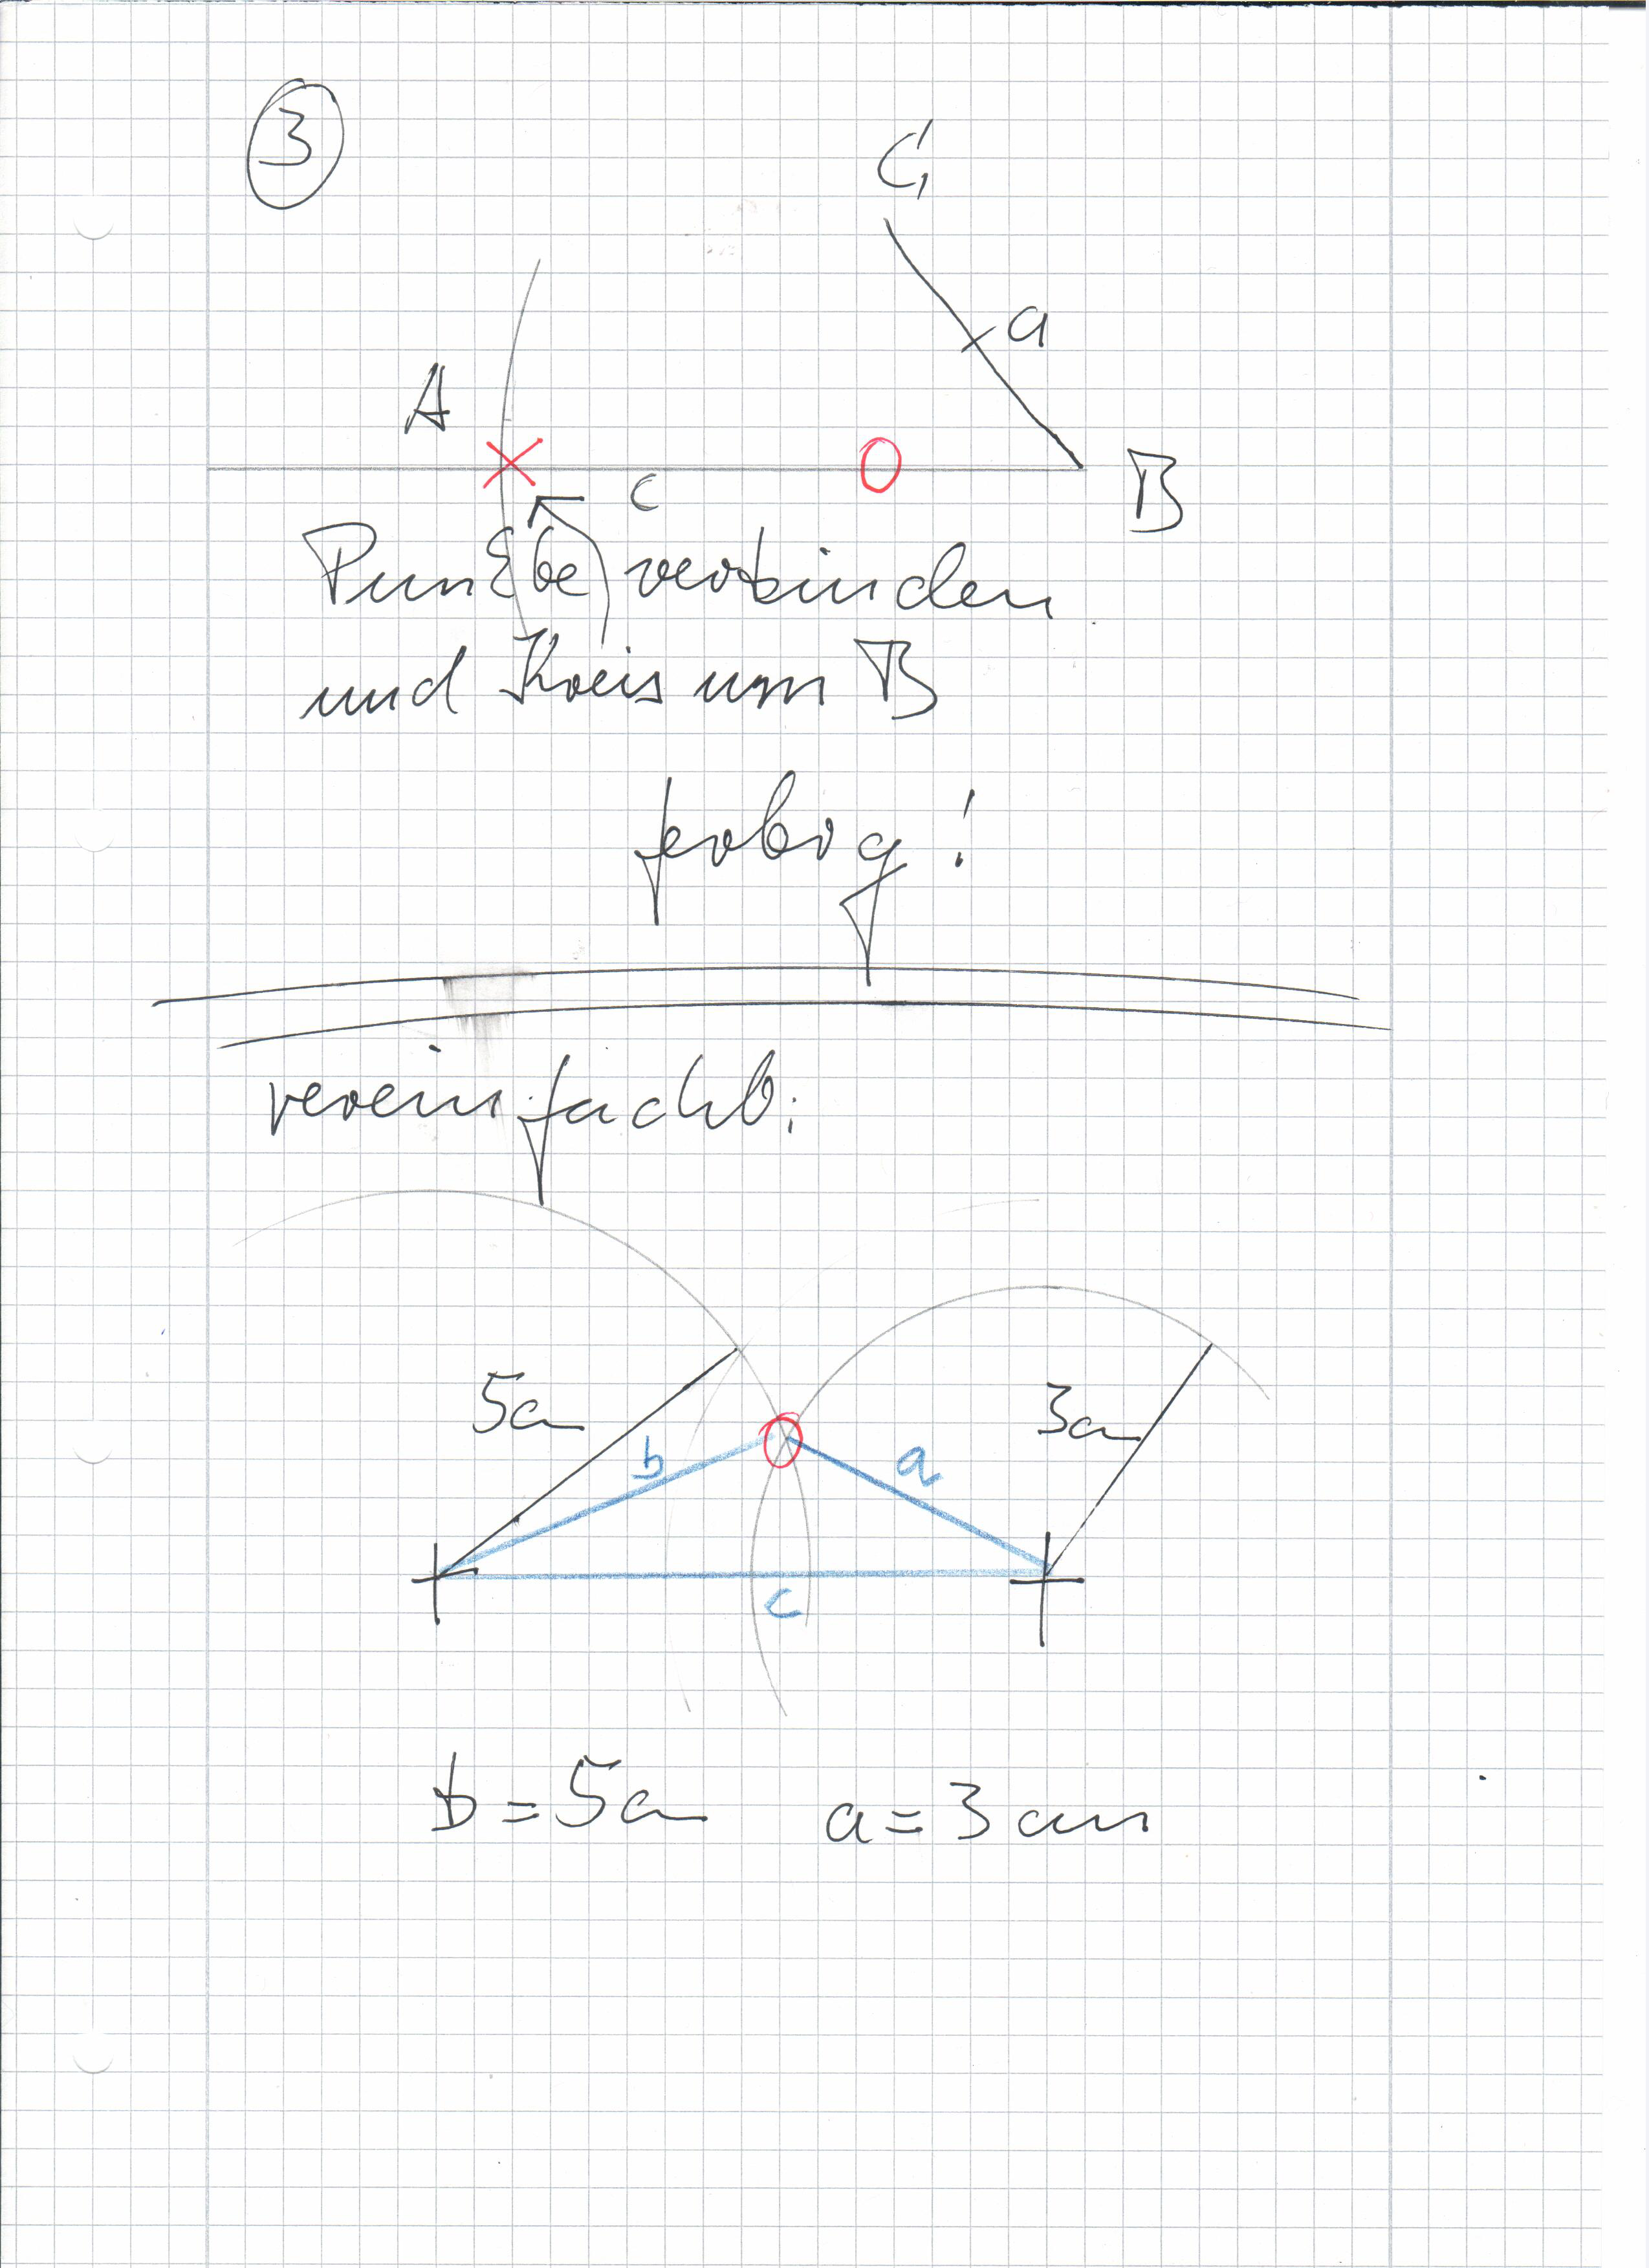 3
C₁
a
A
c
B
Punkte verbinden
und Kreis um B
fertig!
vereinfacht:
5cm
3cm
b
a
c
b = 5cm a = 3cm